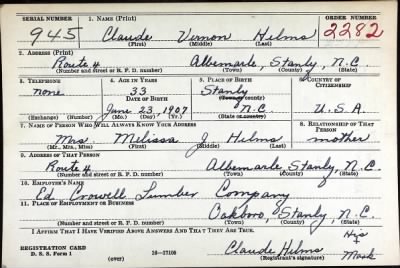 SERIAL NUMBER 1. NAME (Print) ORDER NUMBER
945 Claude Vernon Helms 2282
(First) (Middle) (Last)
2. ADDRESS (Print)
Route 4 Albemarle, Stanly, N.C.
(Number and street or R. F. D. number) (Town) (County) (State)
3. TELEPHONE 4. AGE IN YEARS 5. PLACE OF BIRTH 6. COUNTRY OF CITIZENSHIP
none 33 Stanly
DATE OF BIRTH (Town or county)
June 23, 1907 N.C. U.S.A.
(Exchange) (Number) (Mo.) (Day) (Yr.) (State or country)
7. NAME OF PERSON WHO WILL ALWAYS KNOW YOUR ADDRESS 8. RELATIONSHIP OF THAT PERSON
Mrs. Melissa J Helms mother
(Mr., Mrs., Miss) (First) (Middle) (Last)
9. ADDRESS OF THAT PERSON
Route 4 Albemarle, Stanly, N.C.
(Number and street or R. F. D. number) (Town) (County) (State)
10. EMPLOYER'S NAME
Ed Crowell Lumber Company
11. PLACE OF EMPLOYMENT OR BUSINESS
Oakboro, Stanly, N.C.
(Number and street or R. F. D. number) (Town) (County) (State)
I AFFIRM THAT I HAVE VERIFIED ABOVE ANSWERS AND THAT THEY ARE TRUE. His
REGISTRATION CARD Claude Helms
D. S. S. Form 1 (over) 16—17105 (Registrant's signature) Mark